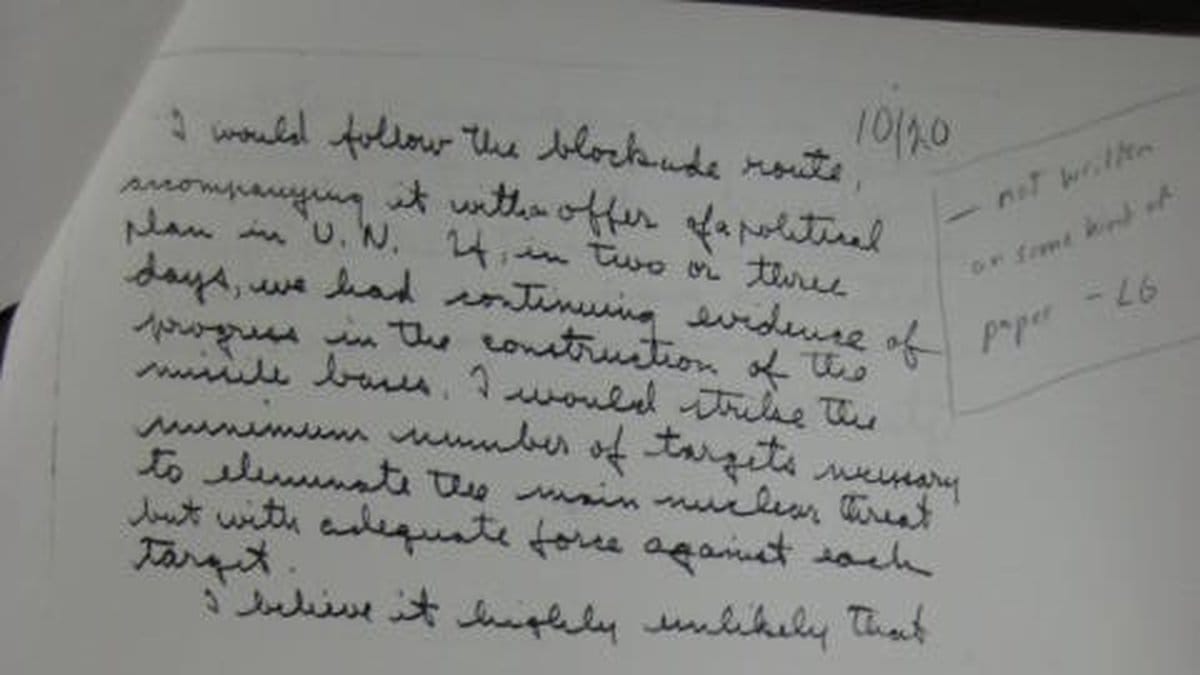 10/20
I would follow the blockade route,
accompanying it with a offer of a political
plan in U.N. If, in two or three
days, we had continuing evidence of
progress in the construction of the
missile bases, I would strike the
minimum number of targets necessary
to eliminate the main nuclear threat
but with adequate force against each
target.
I believe it highly unlikely that
— not written
on same kind of
paper - LG